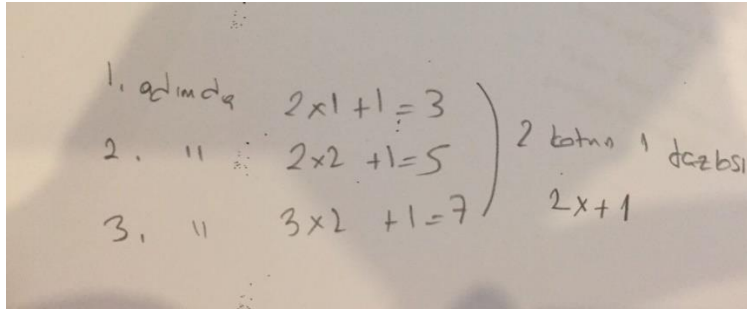 1. adımda 2x1 +1 = 3
2. " 2x2 +1=5
3. " 3x2 +1=7
2 katının 1 fazlası
2x+1